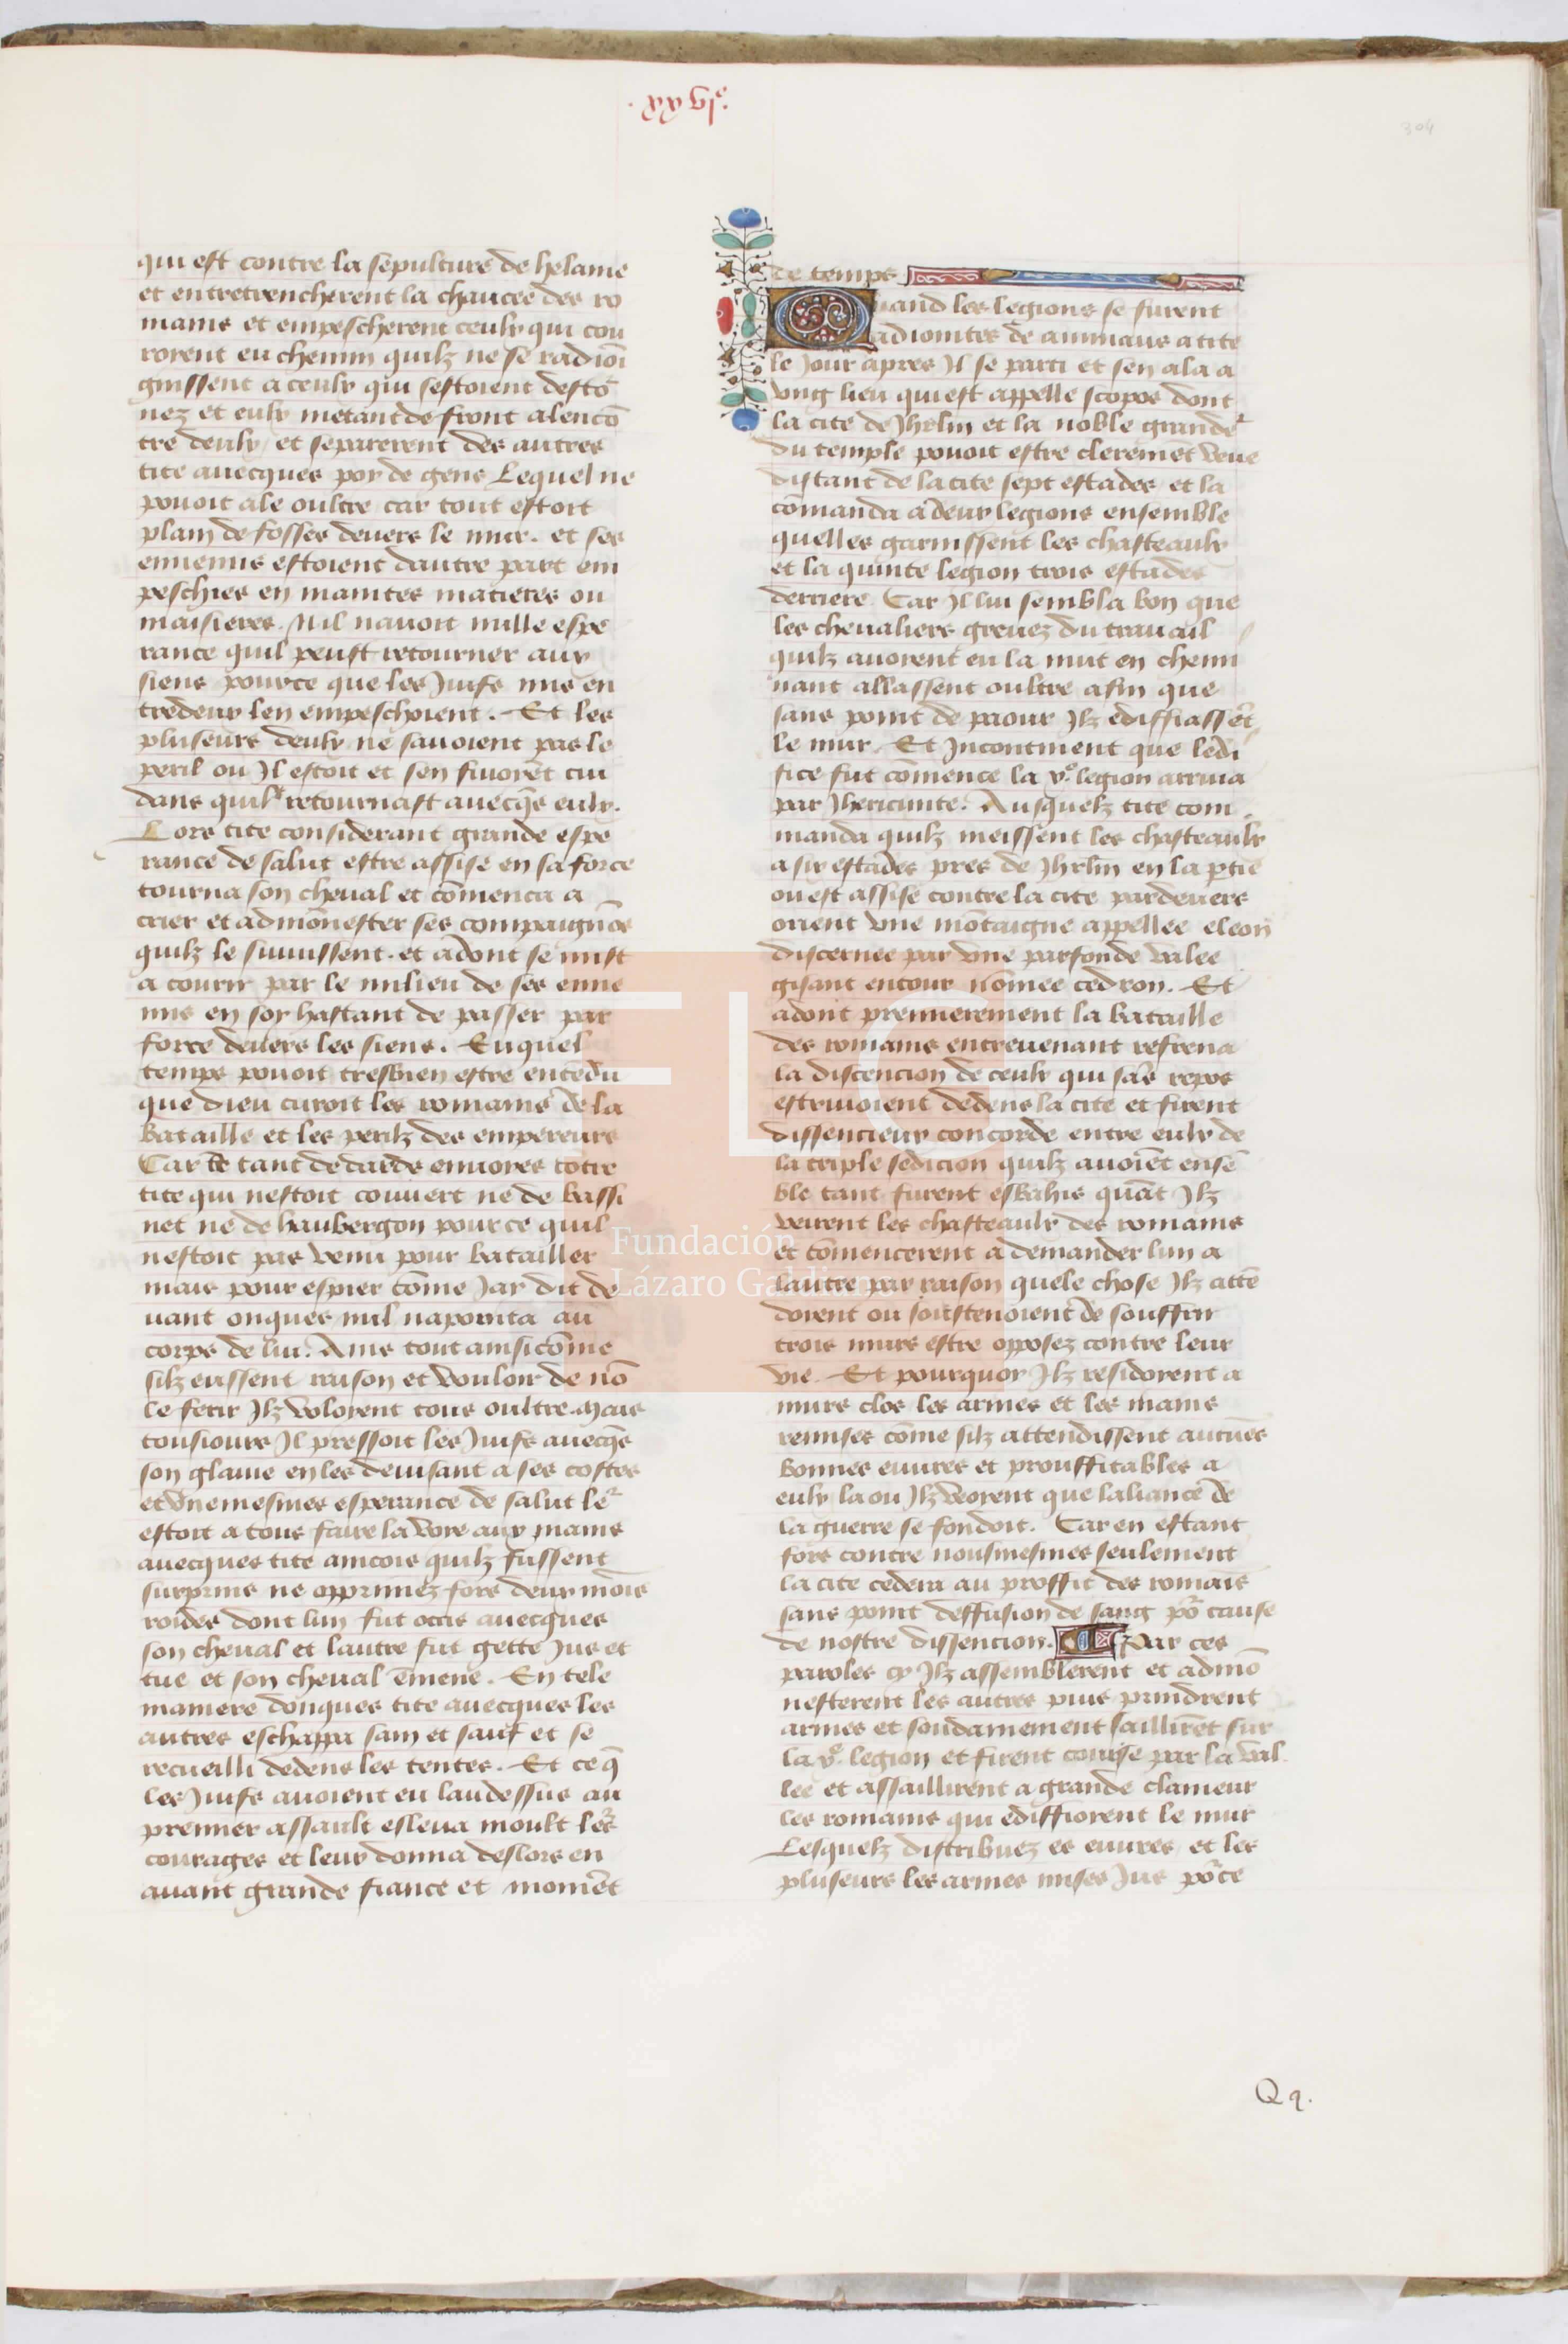 .xxvie.
304
qui est contre la sepulture de helame
et entretrencherent la chaucee des ro
mains et empescherent ceulx qui cou
roient eu chemin quilz ne se radioi
gnissent a ceulx qui sestoient desto
nez et eulx metant de front alencō
tre deulx et separerent des autres
tite auecques poy de gens Lequel ne
pouoit ale oultre car tout estoit
plain de fosses deuers le mur. et ses
ennemis estoient dautre part em
peschies en maintes matieres ou
maisieres. Nil nauoit nulle espe
rance quil peust retourner aux
siens pource que les Juifs mis en
tredeux len empeschoient. Et les
pluseurs deulx ne sauoient pas le
peril ou Jl estoit et sen fuioiēt cui
dans quil retournast auecqs eulx.
Lors tite considerant grande espe
rance de salut estre assise en sa force
tourna son cheual et cōmenca a
crier et admōnester ses compaignōs
quilz le suiuissent. et adont se mist
a courir par le milieu de ses enne
mis en soy hastant de passer par
force deuers les siens. Euquel
temps pouoit tresbien estre entēdu
que dieu curoit les romains de la
bataille et les perilz des empereurs
Car de tant de dards enuoyes cōtre
tite qui nestoit couuert ne de bassi
net ne de haubergon pour ce quil
nestoit pas venu pour batailler
mais pour espier cōme Jay dit de
uant onques nul naprocha au
corps de lui. Ains tout ainsi cōme
silz eussent raison et vouloir de nō
le ferir Jlz voloient tous oultre. Mais
tousiours Jl pressoit les Juifs auecqs
son glaiue en les deuisant a ses costes
et vne mesmes esperance de salut le2
estoit a tous faire la voye aux mains
auecques tite aincois quilz fussent
surprins ne opprimez fors deux mois
roides dont lun fut occis auecques
son cheual et lautre fut gette Jus et
tue et son cheual ēmene. En tele
maniere donques tite auecques les
autres eschappa sain et sauf et se
recueilli dedens les tentes. Et ce q̄
les Juifs auoient eu laudessus au
premier assault esleua moult le2s
courages et leur donna deslors en
auant grande fiance et momēt
de temps
Quand les legions se furent
adiointes de ammaus a tite
le Jour apres Jl se parti et sen ala a
vng lieu qui est appelle scopos dont
la cite de Jhrlm et la noble grande2
du temple pouoit estre cleremēt veue
distant de la cite sept estades et la
cōmanda a deux legions ensemble
quelles garnissent les chasteaulx
et la quinte legion trois estades
derriere. Car Jl lui sembla bon que
les cheualiers greuez du trauail
quilz auoient eu la nuit en chemi
nant allassent oultre afin que
sans point de paour Jlz ediffiassēt
le mur. Et Jncontinent que ledi
fice fut cōmence la ve legion arriua
par Jhericunte. Ausquelz tite com
manda quilz meissent les chasteaulx
a six estades pres de Jhrlm en la ptie
ou est assise contre la cite pardeuers
orient vne mōtaigne appellee eleon
discernee par vne parfonde valee
gisant entour nōmee cedron. Et
adont premierement la bataille
des romains entreuenant refrena
la discencion de ceulx qui sās repos
estriuoient dedens la cite et firent
dissencieux concorde entre eulx de
la triple sedicion quilz auoiēt ensē
ble tant furent esbahis quāt Jlz
veirent les chasteaulx des romains
et cōmencerent a demander lun a
lautre par raison quele chose Jlz attē
doient ou soustenoient de souffrir
trois murs estre opposez contre leur
vie. Et pourquoy Jlz residoient a
murs clos les armes et les mains
remises cōme silz attendissent autūes
bonnes euures et prouffitables a
eulx la ou Jlz veoient que laliance de
la guerre se fondoit. Car en estant
fors contre nousmesmes seulement
la cite cedera au proffit des romais
sans point deffusion de sang po2 cause
de nostre dissencion. Par ces
paroles cy Jlz assemblerent et admō
nesterent les autres puis prindrent
armes et soudainement saillirēt sur
la ve legion et firent course par la val
lee et assaillirent a grande clameur
les romains qui ediffioient le mur
Lesquelz distribuez es euures et les
pluseurs les armes mises Jus po2ce
Qq.
FLG
Fundación
Lázaro Galdiano